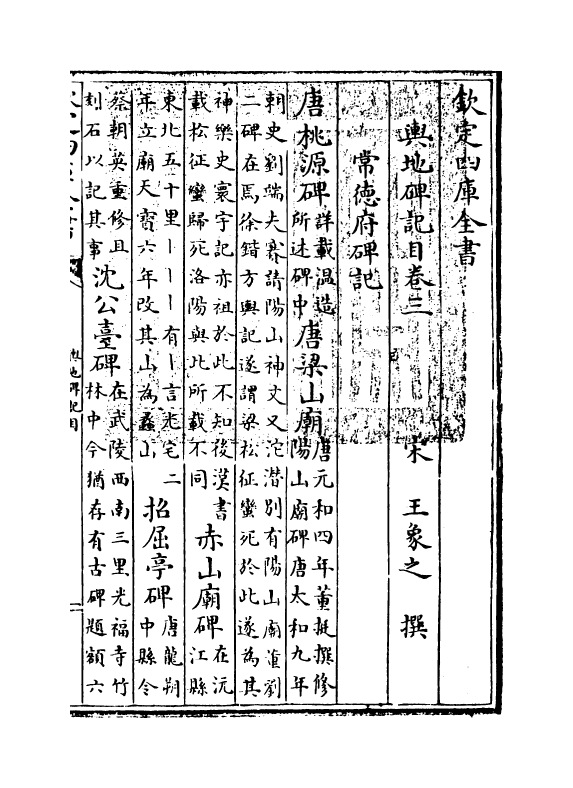 欽定四庫全書
輿地碑記目卷三　宋　王象之　撰
常德府碑記
唐桃源碑詳載温造所述碑中唐梁山廟唐元和四年董挺撰修陽山廟碑唐太和九年
朝史劉端夫賽請陽山神文又沱潜別有陽山廟董劉二碑在焉徐鍇方輿記遂謂梁松征蠻死於此遂為其
神樂史寰宇記亦祖於此不知後漢書載松征蠻歸死洛陽與此所載不同赤山廟碑在沅江縣
東北五十里丨丨丨有丨言光宅二年立廟天寳六年改其山為蠡山招屈亭碑唐龍朔中縣令
蔡朝英重修且刻石以記其事沈公臺碑在武陵西南三里光福寺竹林中今猶存有古碑題額六
輿地碑記目